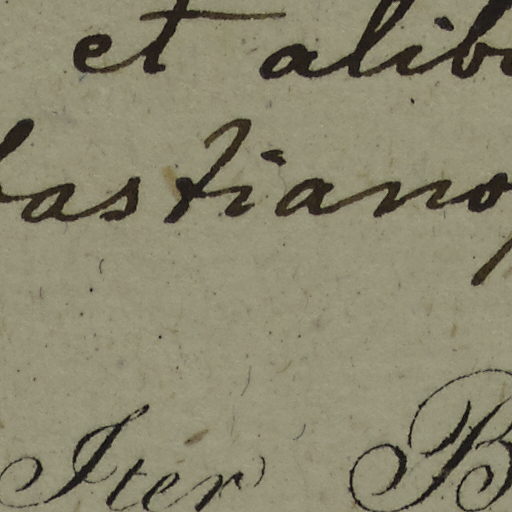 et alib
bastianop
Iter B